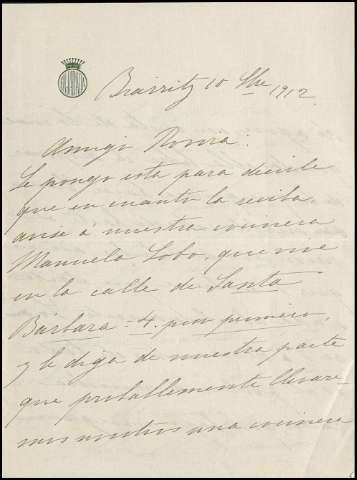 Biarritz 10 Sbre 1912.
Amigo Rovira:
Le pongo esta para decirle
que en cuanto la reciba,
avise á nuestra cocinera
Manuela Lobo, que vive
en la calle de Santa
Bárbara-4, piso primero,
y le diga de nuestra parte
que probablemente llevare-
mos nosotros una cocinera